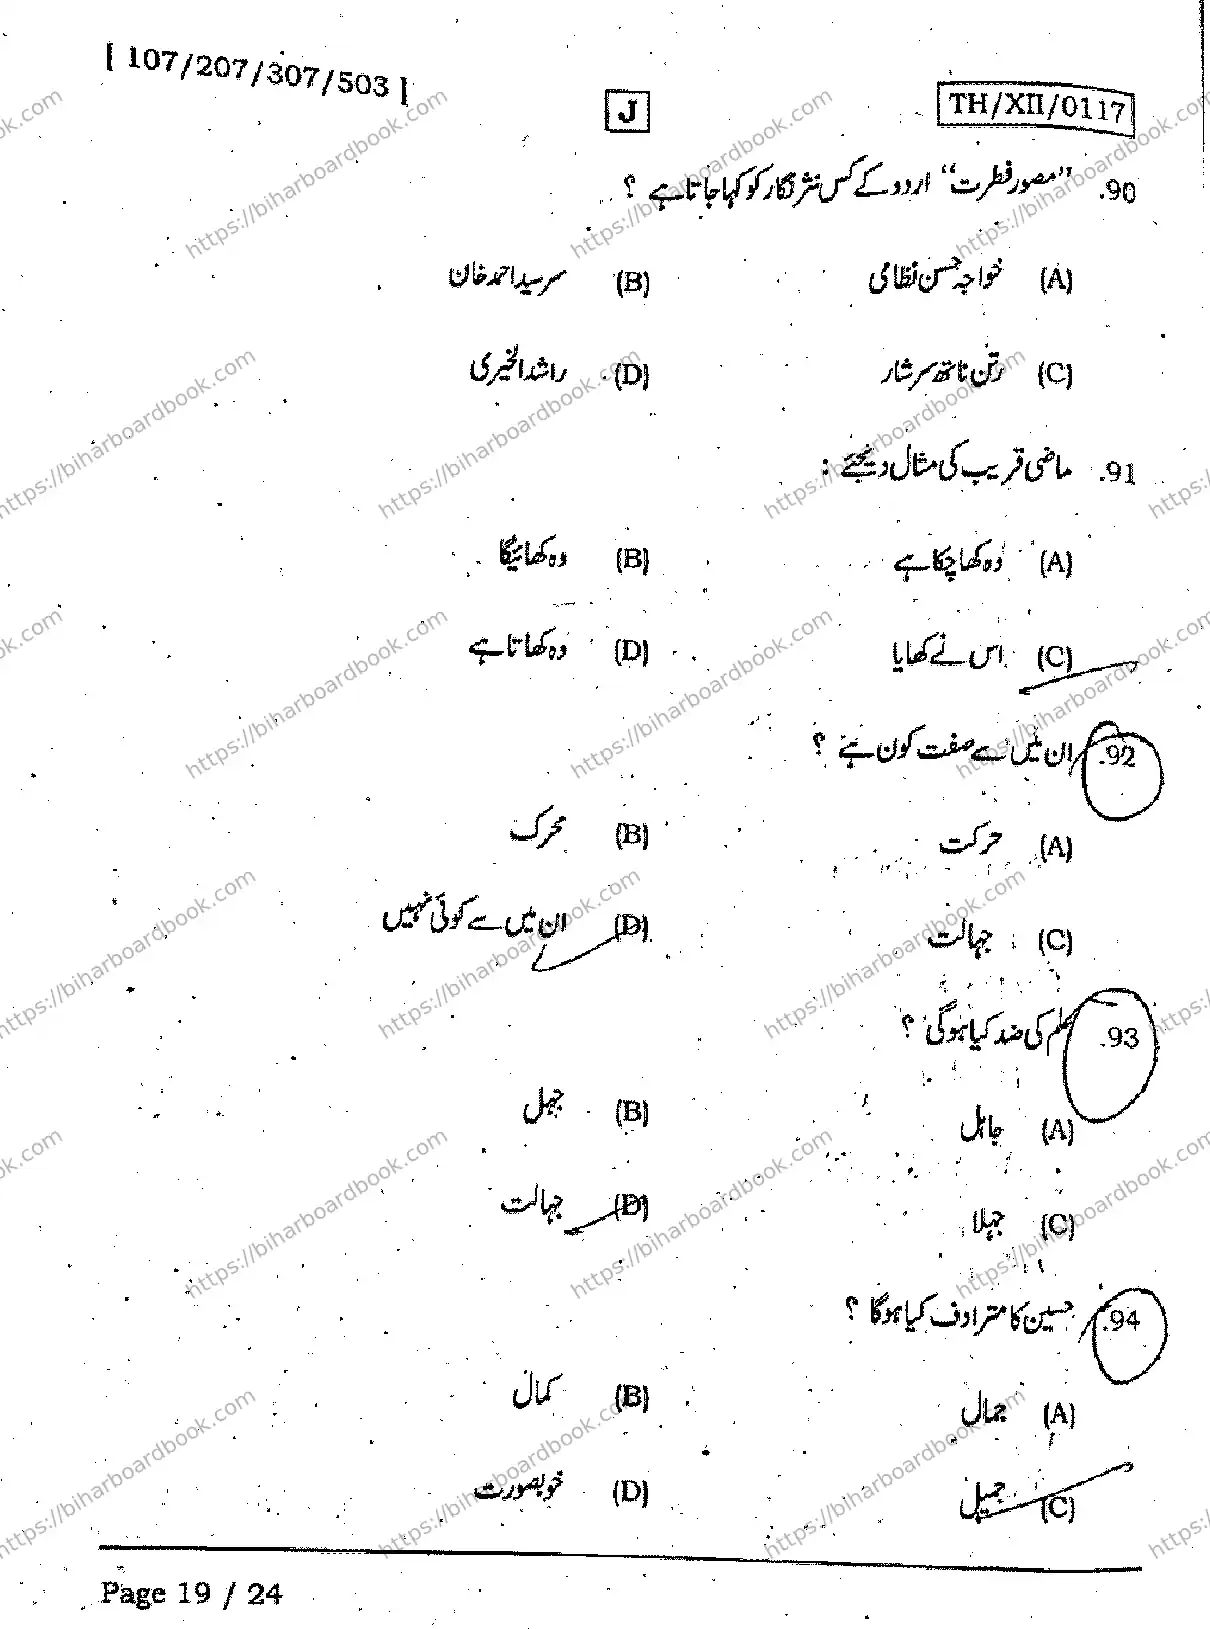 [ 107/207/307/503 ]
J
TH/XII/0117
90. "مصور فطرت" اردو کے کس نثر نگار کو کہا جاتا ہے ؟
(A) خواجہ حسن نظامی (B) سرسید احمد خان
(C) رتن ناتھ سرشار (D) راشد الخیری
91. ماضی قریب کی مثال دیجئے :
(A) وہ کھا چکا ہے (B) وہ کھائیگا
(C) اس نے کھایا (D) وہ کھاتا ہے
92. ان میں سے صفت کون ہے ؟
(A) حرکت (B) محرک
(C) جہالت (D) ان میں سے کوئی نہیں
93. علم کی ضد کیا ہوگی ؟
(A) جاہل (B) جہل
(C) جہلا (D) جہالت
94. حسین کا مترادف کیا ہوگا ؟
(A) جمال (B) کمال
(C) جمیل (D) خوبصورت
Page 19 / 24
https://biharboardbook.com